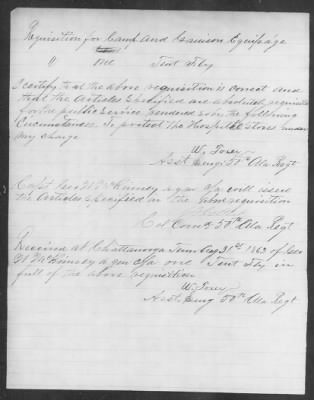 Requisition for Camp and Garrison Equipage
" one Tent Fly
I certify that the above requisition is correct and
that the articles specified are absolutely requisite
for the public service, rendered so by the following
circumstances. To protect the Hospital stores under
my charge
W.
Asst Surg 50th Ala Regt
Capt Geo W McKinney a qm c/a will issue
the articles specified in the above requisition
Col Com'g 50th Ala Regt
Received at Chattanooga Tenn Aug 31st 1863 of Geo
W McKinney a qm c/a one Tent Fly in
full of the above requisition
W.
Asst Surg 50th Ala Regt